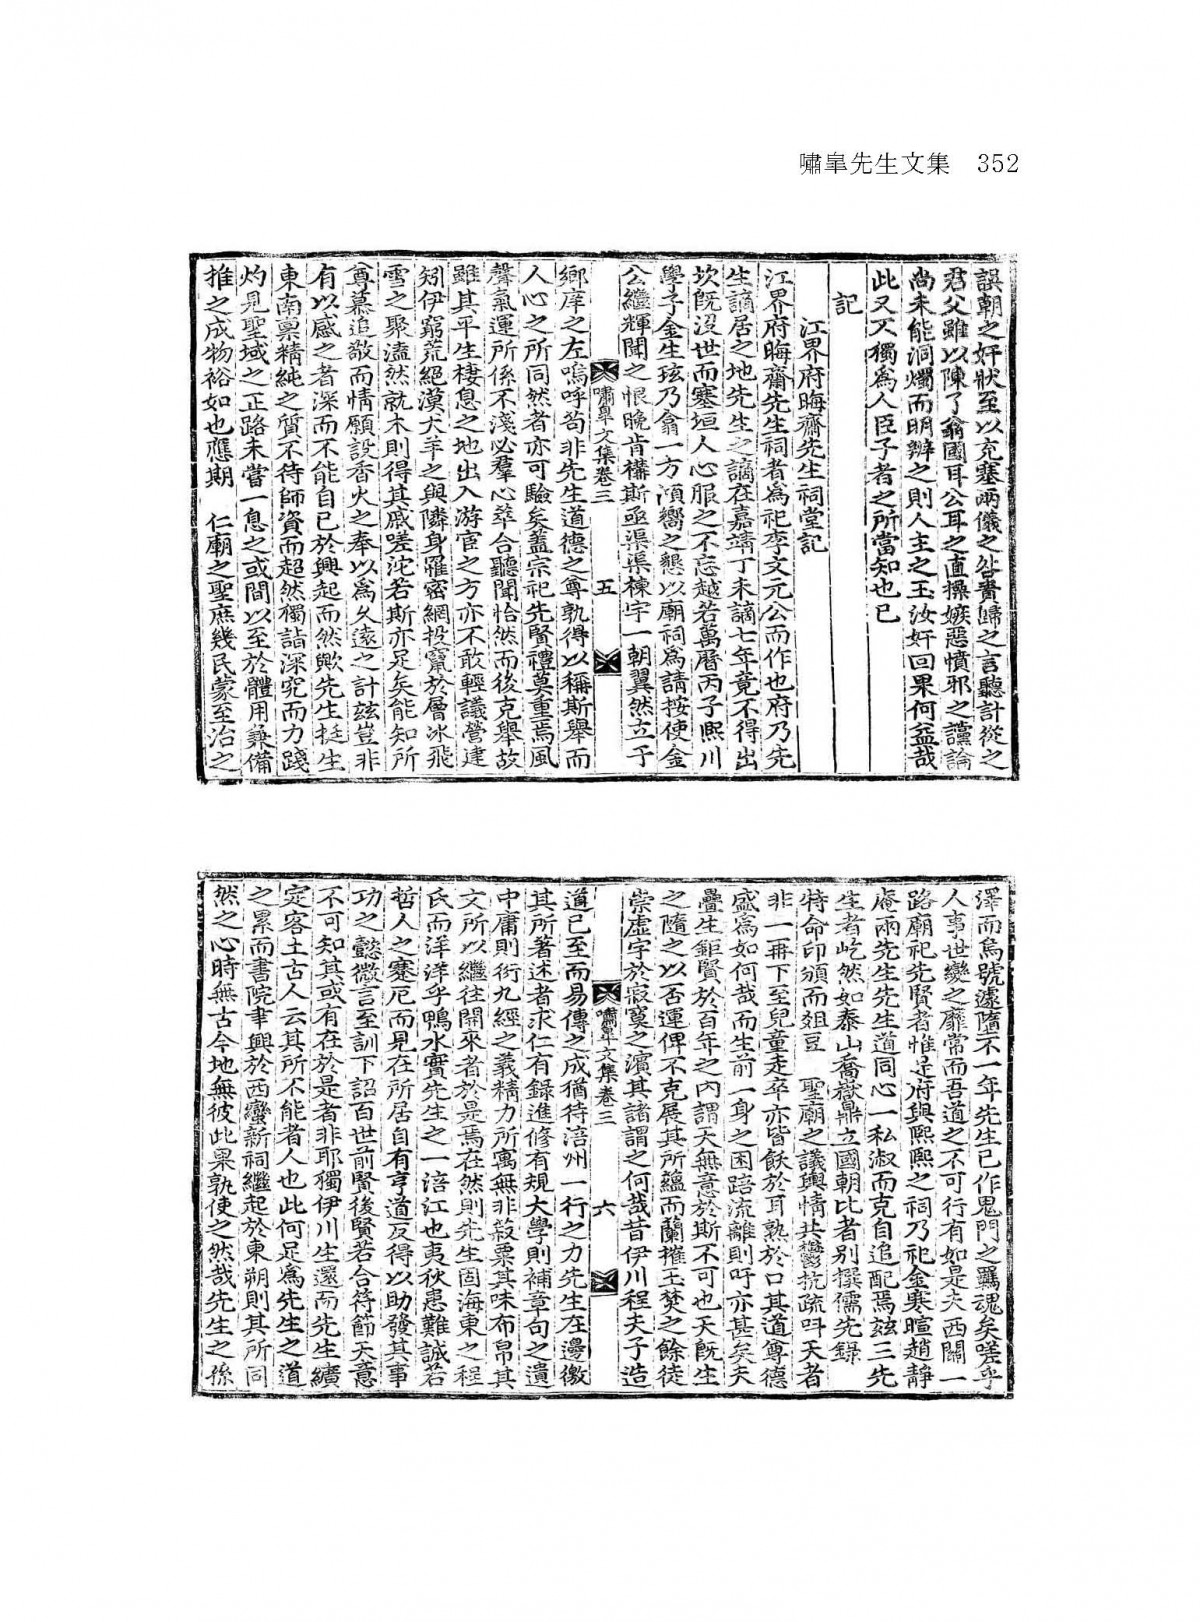 嘯皐先生文集 352
誤朝之奸狀至以充塞兩儀之咎嘗歸之言聽計從之
君父雖以陳了翁國耳公耳之直操嫉惡憤邪之讜論
尚未能洞燭而明辨之則人主之玉汝奸回果何益哉
此又不獨為人臣子者之所當知也已
記
江界府晦齋先生祠堂記
江界府晦齋先生祠者為祀李文元公而作也府乃先
生謫居之地先生之謫在嘉靖丁未謫七年竟不得出
坎旣沒世而塞垣人心服之不忘越若萬曆丙子熙川
學子金生玹乃翕一方傾嚮之懇以廟祠為請按使金
公繼輝聞之恨晚肯構斯亟渠渠棟宇一朝翼然立于
嘯皐文集卷三 五
鄕庠之左嗚呼苟非先生道德之尊孰得以稱斯舉而
人心之所同然者亦可驗矣蓋宗祀先賢禮莫重焉風
聲氣運所係不淺必羣心萃合聽聞恰然而後克舉故
雖其平生棲息之地出入游宦之方亦不敢輕議營建
矧伊窮荒絕漠犬羊之與隣身罹密網投竄於層冰飛
雪之聚溘然就木則得其戚嗟沱若斯亦足矣能知所
尊慕追敬而情願設香火之奉以爲久遠之計玆豈非
有以感之者深而不能自已於興起而然歟先生挺生
東南禀精純之質不待師資而超然獨詣深究而力踐
灼見聖域之正路未嘗一息之或間以至於體用兼備
推之成物裕如也應期 仁廟之聖庶幾民蒙至治之
澤而烏號遽墮不一年先生已作鬼門之羈魂矣嗟乎
人事世變之靡常而吾道之不可行有如是夫西關一
路廟祀先賢者惟是府與熙熙之祠乃祀金寒暄趙靜
庵兩先生先生道同心一私淑而克自追配焉玆三先
生者屹然如泰山喬嶽鼎立國朝比者別撰儒先錄
特命印頒而俎豆 聖廟之議輿情共鬱抗疏叫天者
非一再下至兒童走卒亦皆飫於耳熟於口其道尊德
盛爲如何哉而生前一身之困踣流離則吁亦甚矣夫
疊生鉅賢於百年之內謂天無意於斯不可也天旣生
之隨之以否運俾不克展其所蘊而蘭摧玉焚之餘徒
崇虛宇於寂寞之濱其諸謂之何哉昔伊川程夫子造
嘯皐文集卷三 六
道已至而易傳之成猶待涪州一行之力先生在邊徼
其所著述者求仁有錄進修有規大學則補章句之遺
中庸則衍九經之義精力所寓無非菽粟其味布帛其
文所以繼往開來者於是焉在然則先生固海東之程
氏而洋洋乎鴨水實先生之一涪江也夷狄患難誠若
哲人之蹇厄而見在所居自有亨道反得以助發其事
功之懿微言至訓下詔百世前賢後賢若合符節天意
不可知其或有在於是者非耶獨伊川生還而先生續
定客土古人云其所不能者人也此何足爲先生之道
之累而書院聿興於西蠻新祠繼起於東朔則其所同
然之心時無古今地無彼此果孰使之然哉先生之孫